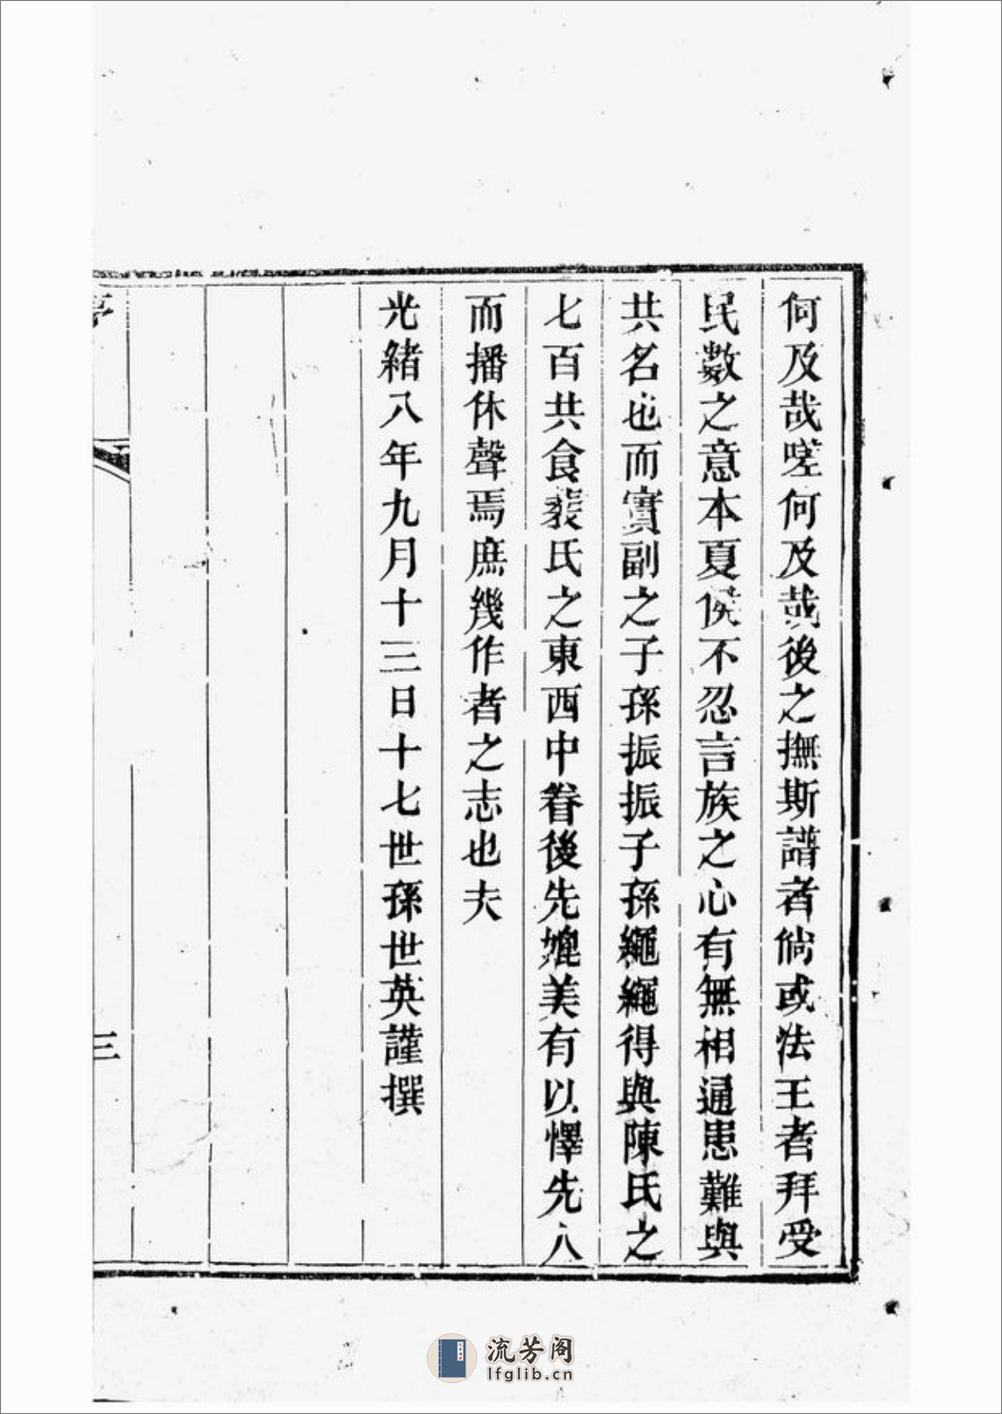 何及哉嗟何及哉後之撫斯譜者倘或法王者拜受
民數之意本夏侯不忍言族之心有無相通患難與
共名也而實副之子孫振振子孫繩繩得與陳氏之
七百共食裴氏之東西中眷後先媲美有以懌先人
而播休聲焉庶幾作者之志也夫
光緒八年九月十三日十七世孫世英謹撰
三
流芳阁
lfglib.cn